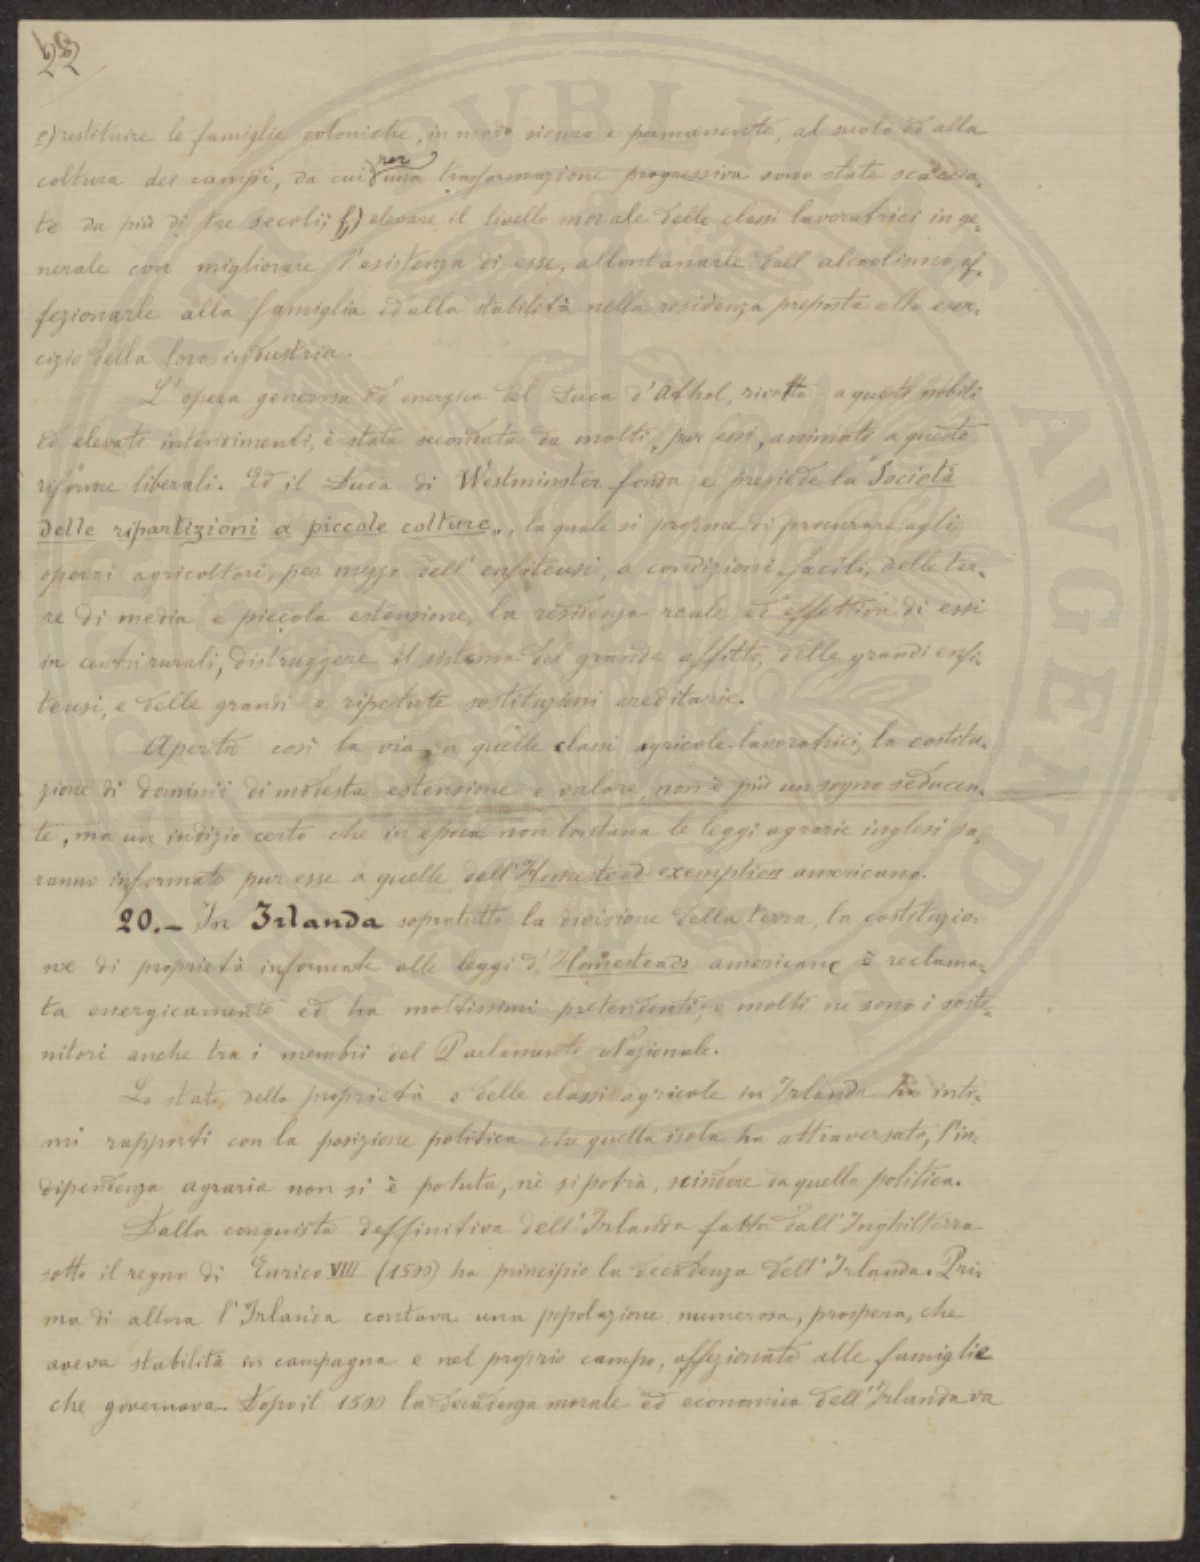 22
e) restituire le famiglie coloniche, in modo sicuro e permanente, al suolo ed alla
coltura dei campi, da cui per una trasformazione progressiva sono state scaccia-
te da più di tre secoli; f) elevare il livello morale delle classi lavoratrici in ge-
nerale con migliorare l'esistenza di esse, allontanarle dall'alcoolismo, af-
fezionarle alla famiglia ed alla stabilità nella residenza preposta allo eser-
cizio della loro industria.
L'opera generosa ed energica del Duca d'Athol, rivolta a questi nobili
ed elevati intendimenti, è stata secondata da molti, pur essi, animati a queste
riforme liberali. Ed il Duca di Westminster fonda e presiede la "Società
delle ripartizioni a piccole colture", la quale si propone di procurare agli
operai agricoltori, per mezzo dell'enfiteusi, a condizioni facili, delle ter-
re di media e piccola estensione, la residenza reale ed effettiva di essi
in centri rurali, distruggere il sistema del grande affitto, delle grandi enfi-
teusi, e delle grandi e ripetute sostituzioni ereditarie.
Aperta così la via a quelle classi agricole lavoratrici, la costitu-
zione di dominii di modesta estensione e valore, non è più un sogno seducen-
te, ma un indizio certo che in epoca non lontana le leggi agrarie inglesi sa-
ranno informate pur esse a quelle dell'Homestead exemption americano.
20.- In Irlanda sopratutto la divisione della terra, la costituzio-
ne di proprietà informate alle leggi d'Homesteads americane è reclama-
ta energicamente ed ha moltissimi pretendenti; e molti ne sono i soste-
nitori anche tra i membri del Parlamento Nazionale.
Lo stato della proprietà e delle classi agricole in Irlanda ha inti-
mi rapporti con la posizione politica che quella isola ha attraversato, l'in-
dipendenza agraria non si è potuta, nè si potrà, scindere da quella politica.
Dalla conquista deffinitiva dell'Irlanda fatta dall'Inghilterra
sotto il regno di Enrico VIII (1500) ha principio la decadenza dell'Irlanda. Pri-
ma di allora l'Irlanda contava una popolazione numerosa, prospera, che
aveva stabilità in campagna e nel proprio campo, affezionata alle famiglie
che governava. Dopo il 1500 la decadenza morale ed economica dell'Irlanda va